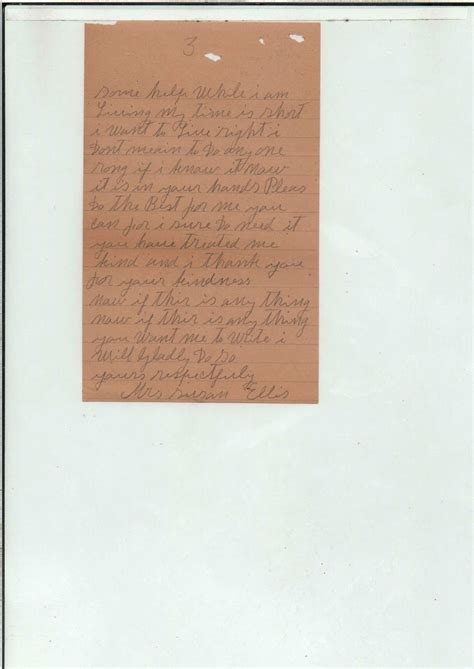 3
some help While i am
Living my time is short
i Want to Live right i
Dont meain to Do any one
rong if i knaw it Naw
it is in your hands Pleas
Do the Best for me you
can for i sure Do need it
you have treated me
kind and i thank you
for your kindness
Naw if this is any thing
naw if this is any thing
you Want me to Write i
Will Gladly Do so
yours respectfuly
Mrs Susan Ellis